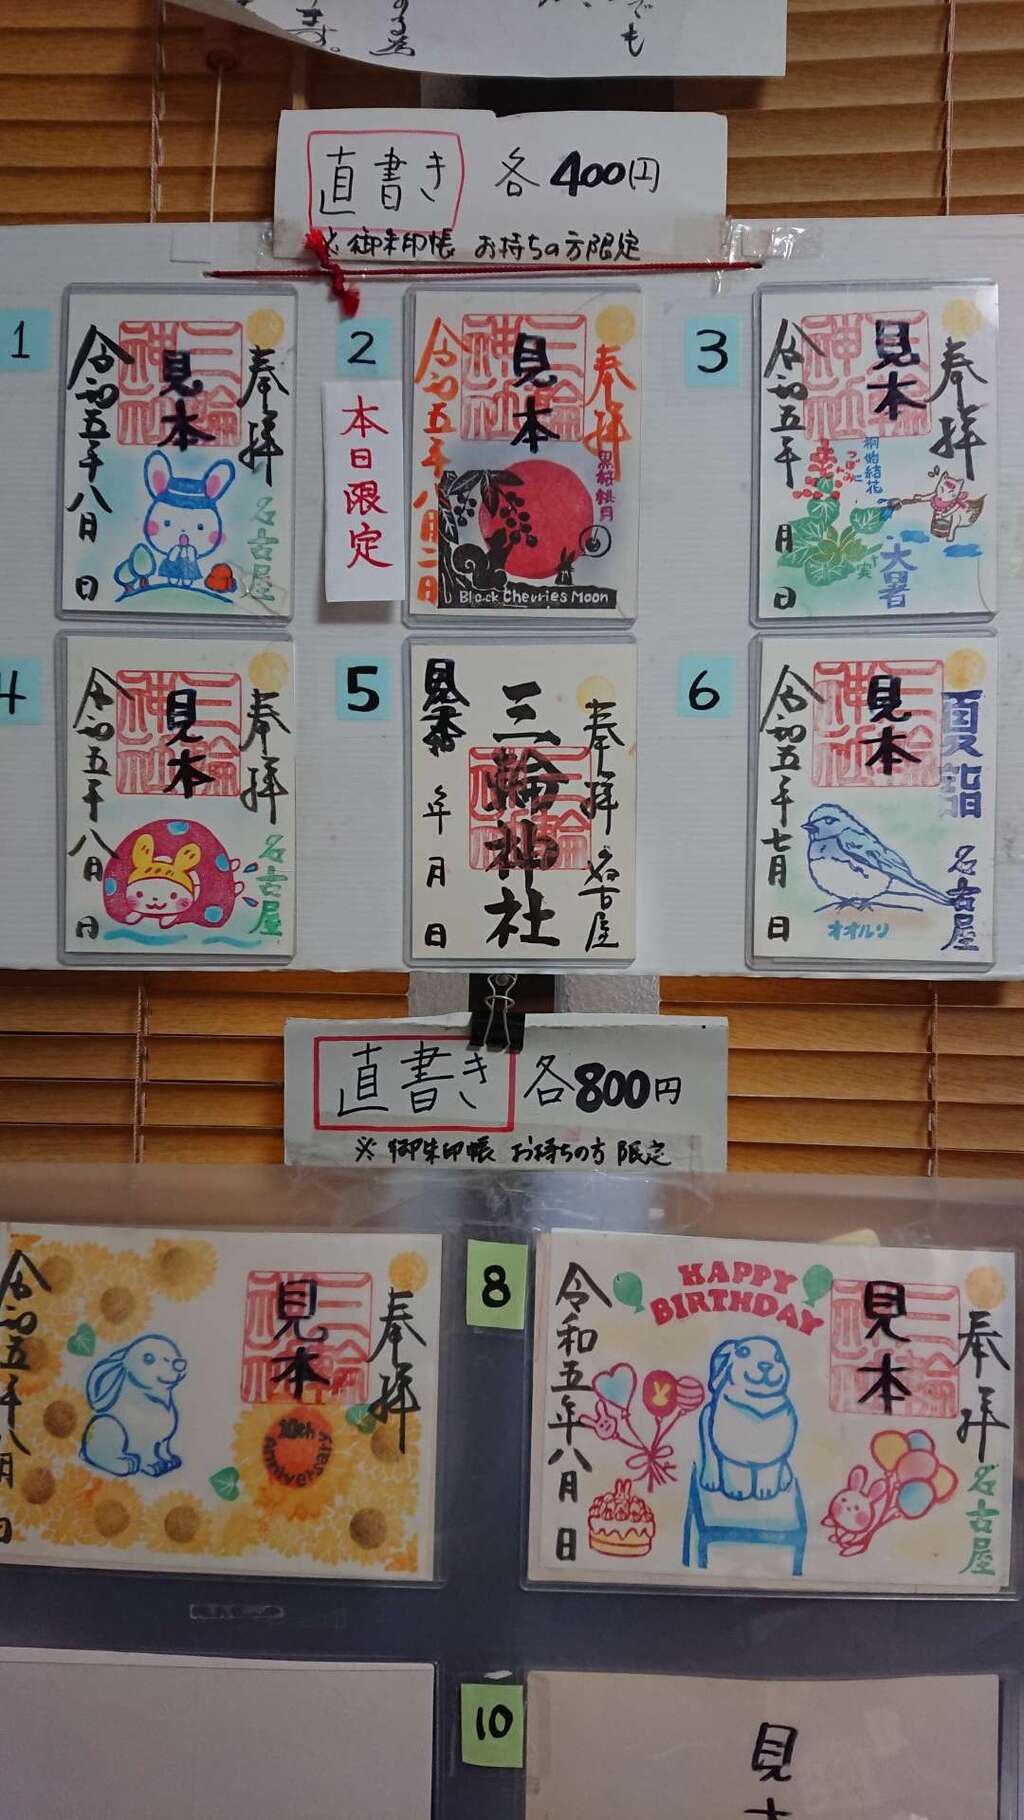 でも
ます。
直書き 各400円
※御朱印帳 お持ちの方限定
1
奉拝
見本
三輪神社
令和五年八月 日
名古屋
2
本日限定
奉拝
見本
三輪神社
令和五年八月二日
黒桜桃月
Black Cherries Moon
3
奉拝
見本
三輪神社
令和五年 月 日
桐始結花
大暑
4
奉拝
見本
三輪神社
令和五年八月 日
名古屋
5
奉拝
名古屋
三輪神社
三輪神社
見本
年 月 日
6
夏詣
名古屋
見本
三輪神社
令和五年七月 日
オオルリ
直書き 各800円
※御朱印帳 お持ちの方 限定
奉拝
見本
三輪神社
10th
Anniversary
令和五年八月 日
8
奉拝
名古屋
見本
三輪神社
HAPPY
BIRTHDAY
令和五年八月 日
10
見本